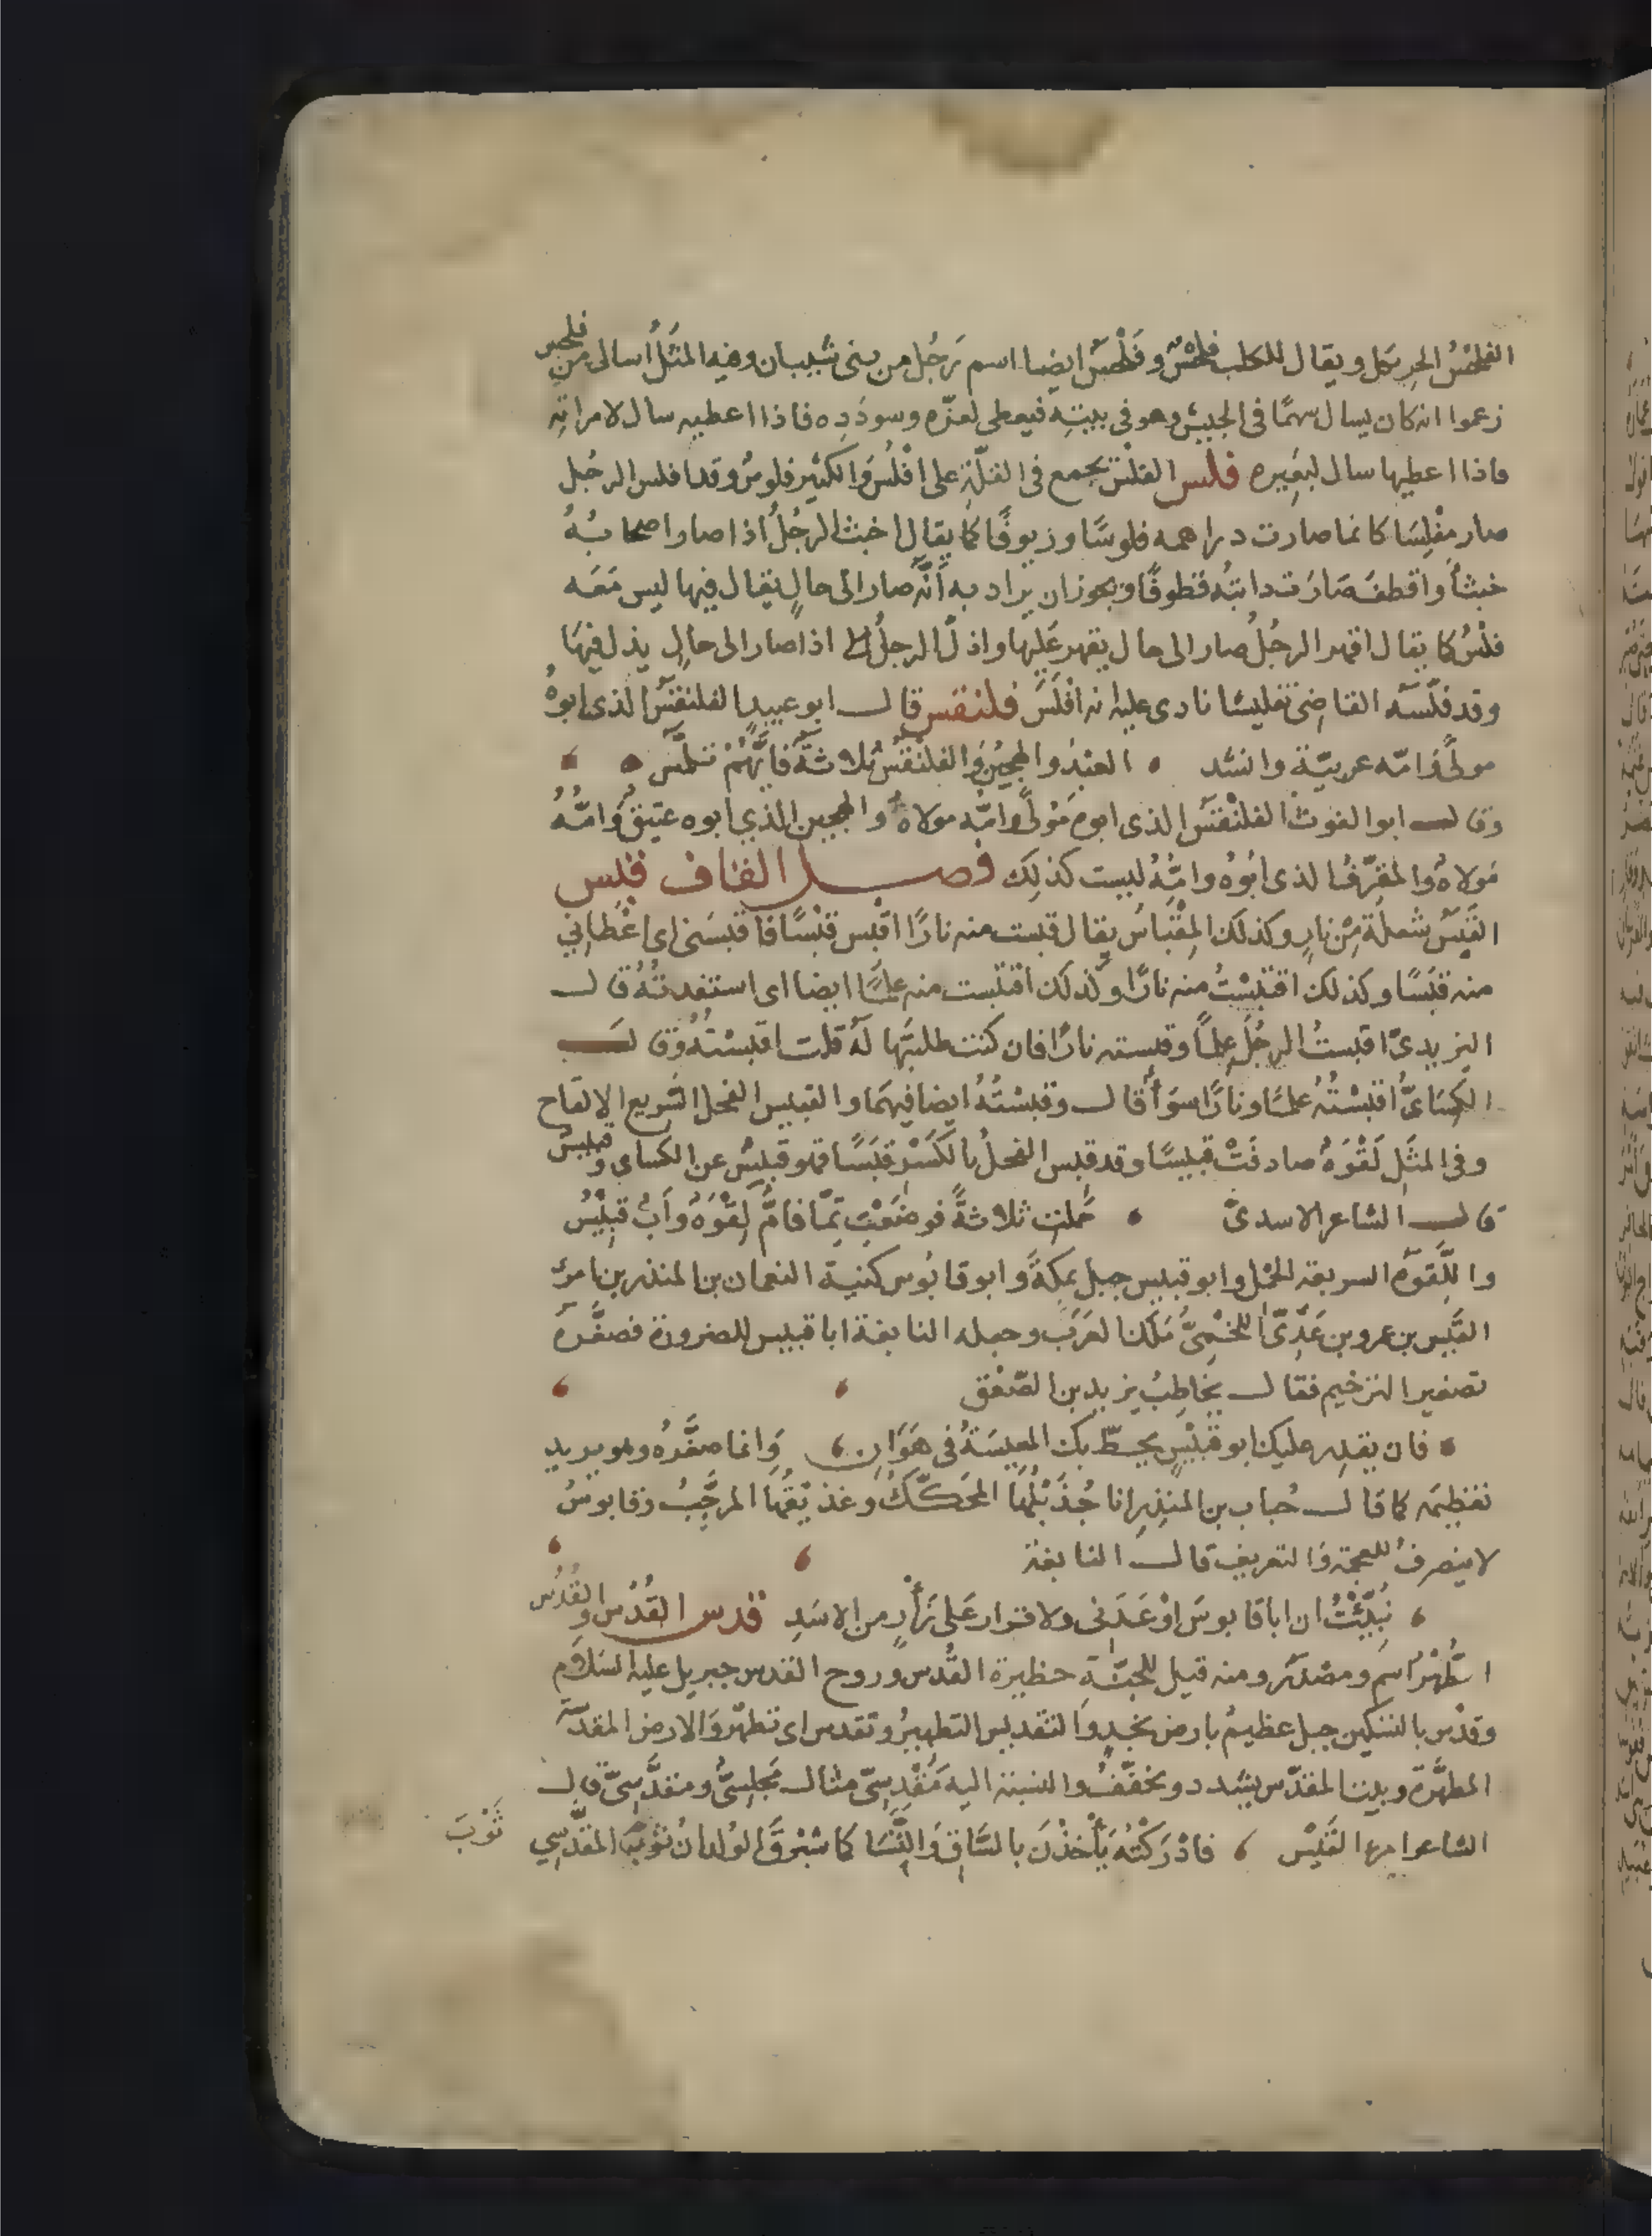 الفلحس الحريص ويقال للكلب فلحس وفلحس ايضا اسم رجل من بني شيبان وفيه المثل اسال من فلحس
زعموا انه كان يسال سهما في الجيش وهو في بيته فيعطى لعزه وسودده فاذا اعطيه سال لامراته
فاذا اعطيها سال لبعيره فلس الفلس يجمع في القلة على افلس والكثير فلوس وقد افلس الرجل
صار مفلسا كانما صارت دراهمه فلوسا وزيوفا كما يقال اخبث الرجل اذا صار اصحابه
خبثا واقطف صارت دابته قطوفا ويجوز ان يراد به انه صار الى حال يقال فيها ليس معه
فلس كما يقال اقهر الرجل صار الى حال يقهر عليها واذل الرجل اذا صار الى حال يذل فيها
وقد فلسه القاضي تفليسا نادى عليه انه افلس فلنقس قال ابو عبيد الفلنقس الذي ابوه
مولى وامه عربية وانشد العبد والهجين والفلنقس ثلاثة فايهم تلمس
وقال ابو الغوث الفلنقس الذي ابوه مولى وامه مولاة والهجين الذي ابوه عتيق وامه
مولاة والمقرف الذي ابوه وامه ليست كذلك فصل القاف قبس
القبس شعلة من نار وكذلك المقباس يقال قبست منه نارا اقبس قبسا فاقبسني اي اعطاني
منه قبسا وكذلك اقتبست منه نارا وكذلك اقتبست منه علما ايضا اي استفدته قال
اليزيدي اقبست الرجل علما وقبسته نارا فان كنت طلبتها له قلت اقبسته وقال
الكسائي اقبسته علما ونارا سوآء قال وقبسته ايضا فيهما والقبيس الفحل السريع الالقاح
وفي المثل لقوة صادفت قبيسا وقد قبس الفحل بالكسر قبسا فهو قبس عن الكساي وقبيس
قال الشاعر الاسدي حملت ثلاثة فوضعت تما فام لقوة واب قبيس
واللقوة السريعة الحمل وابو قبيس جبل بمكة وابو قابوس كنية النعمان بن المنذر بن امرئ
القيس بن عمرو بن عدي اللخمي ملك العرب وجعله النابغة ابا قبيس للضرورة فصغره
تصغير الترخيم فقال يخاطب يزيد بن الصعق
فان يقدر عليك ابو قبيس يحط بك المعيشة في هوان وانما صغره وهو يريد
تعظيمه كما قال حباب بن المنذر انا جذيلها المحكك وعذيقها المرجب وقابوس
لا ينصرف للعجمة والتعريف قال النابغة
نبئت ان ابا قابوس اوعدني ولا قرار على زأر من الاسد قدس القدس والقدس
الطهر اسم ومصدر ومنه قيل للجنة حظيرة القدس وروح القدس جبريل عليه السلام
وقدس بالتسكين جبل عظيم بارض نجد والتقديس التطهير وتقدس اي تطهر والارض المقدسة
المطهرة وبيت المقدس يشدد ويخفف والنسبة اليه مقدسي مثال مجلسي ومقدسي قال
الشاعر امرء القيس فادركنه يأخذن بالساق والنسا كما شبرق الولدان ثوب المقدسي
ثوب